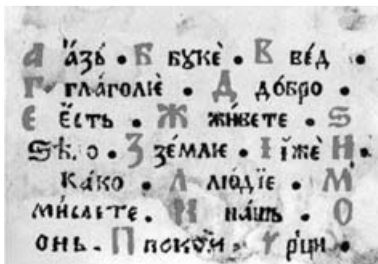 А а҆́зъ • Б бꙋкѐ • В ве́д •
Г глаго́лїе • Д до́бро •
Е е҆́сть • Ж живѐте • Ѕ
ѕѣ́ло • З зе́млїе • І и҆́же̏ Н
ка́ко • Л лю́дїе • М
ми́слѣте • Н на́шъ • О
онь • П покой • Р рци •